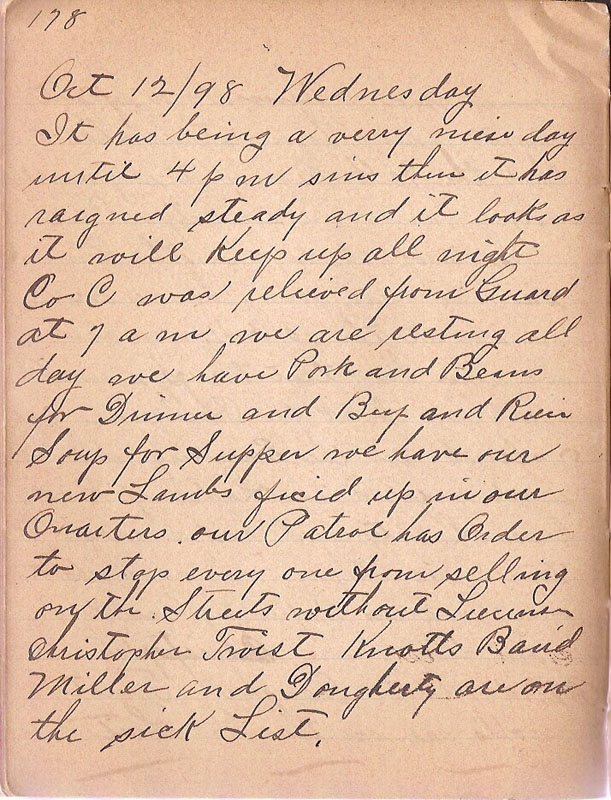 178
Oct 12/98 Wednesday
It has being a verry nice day
until 4 p m sins then it has
raigned steady and it looks as
it will Keep up all night
Co C was relieved from Guard
at 7 a m we are resting all
day we have Pork and Beans
for Dinner and Beef and Rice
Soup for Supper we have our
new Lambs ficed up in our
Quarters. our Patrol has Order
to stop every one from selling
on the Streets without
Christopher Twist Knotts Baird
Miller and Dougherty are on
the sick List.